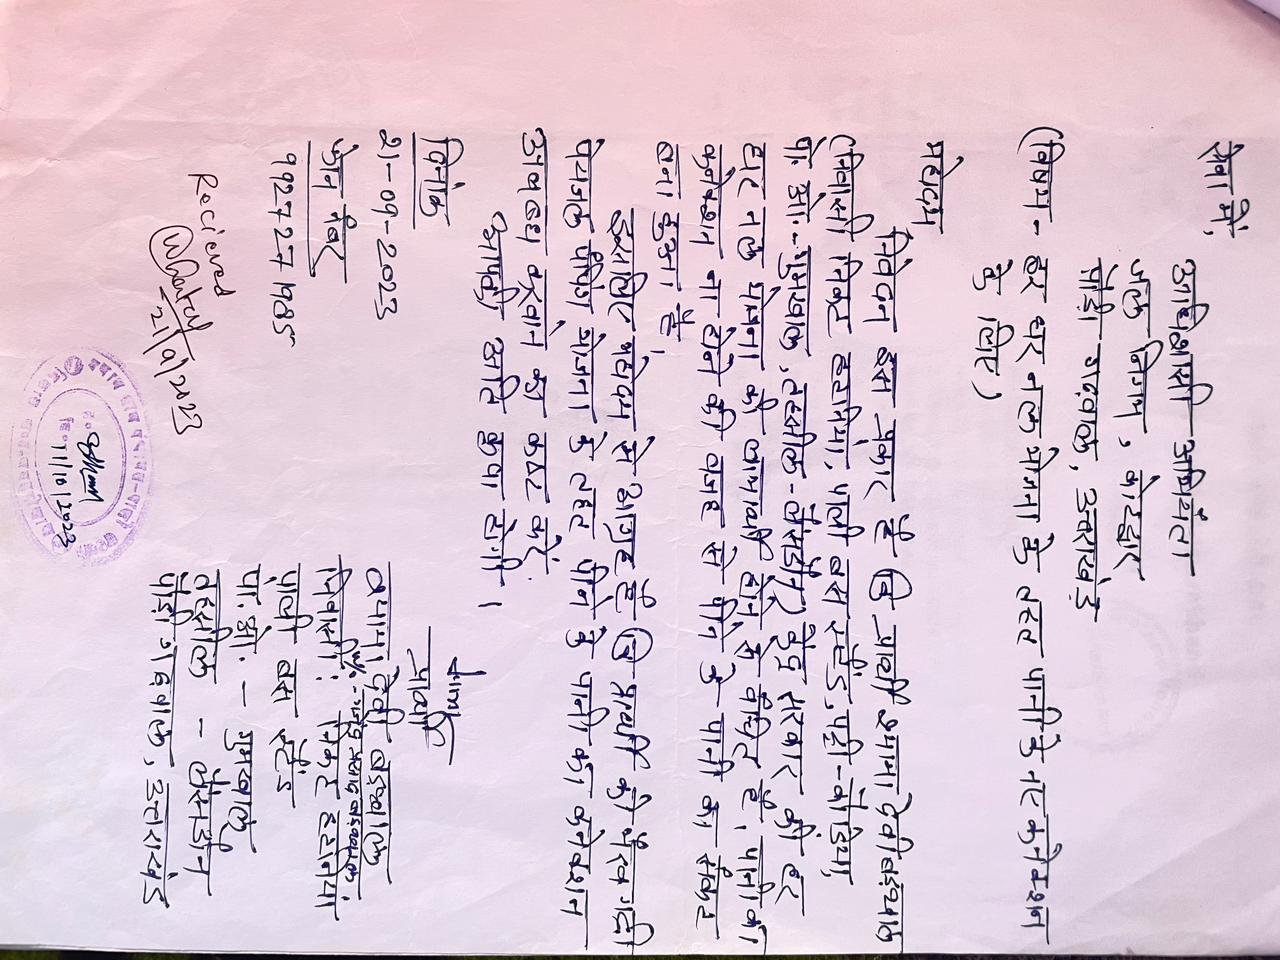 सेवा में,
अधिशासी अभियंता
जल निगम, कोटद्वार
पौड़ी गढ़वाल, उत्तराखंड
(विषय - हर घर नल योजना के तहत पानी के नए कनेक्शन
के लिए)
महोदय
निवेदन इस प्रकार है कि प्रार्थी श्यामा देवी बड़थ्वाल
(निवासी निकट हटनिया, पाली बस स्टैंड, पट्टी-
पो. ओ.- गुमखाल, तहसील - लैंसडौन) केंद्र सरकार की हर
घर नल योजना के लाभार्थी होने से वंचित है, पानी का
कनेक्शन ना होने की वजह से पीने के पानी का संकट
बना हुआ है,
इसलिए महोदय से आग्रह है कि प्रार्थी को भैरव गढ़ी
पेयजल पंपिंग योजना के तहत पीने के पानी का कनेक्शन
उपलब्ध करवाने का कष्ट करें.
आपकी अति कृपा होगी।
दिनांक
21-09-2023
फोन नंबर
9927271985
प्रार्थी
श्यामा देवी बड़थ्वाल
W/o - प्रसाद बड़थ्वाल
निवासी: निकट हटनिया
पाली बस स्टैंड
पो. ओ. - गुमखाल
तहसील - लैंसडौन
पौड़ी गढ़वाल, उत्तराखंड
Recieved
21/9/2023
दि० 11/10/2023